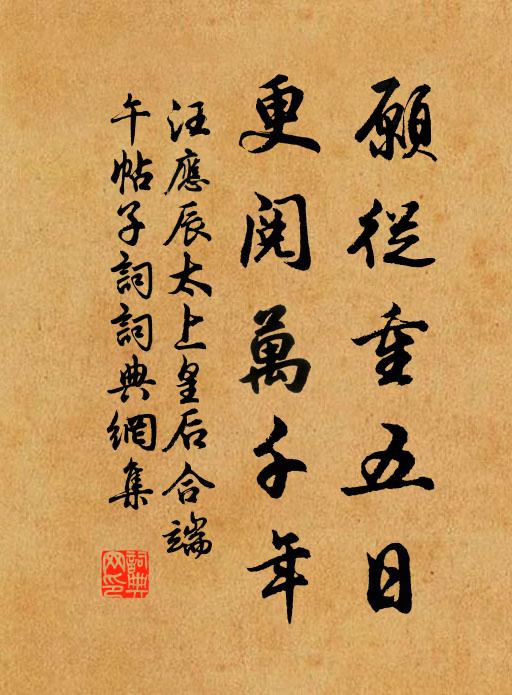 願從重五日
更閱萬千年
汪應辰太上皇后合端
午帖子詞詞典網集
詞典
网印